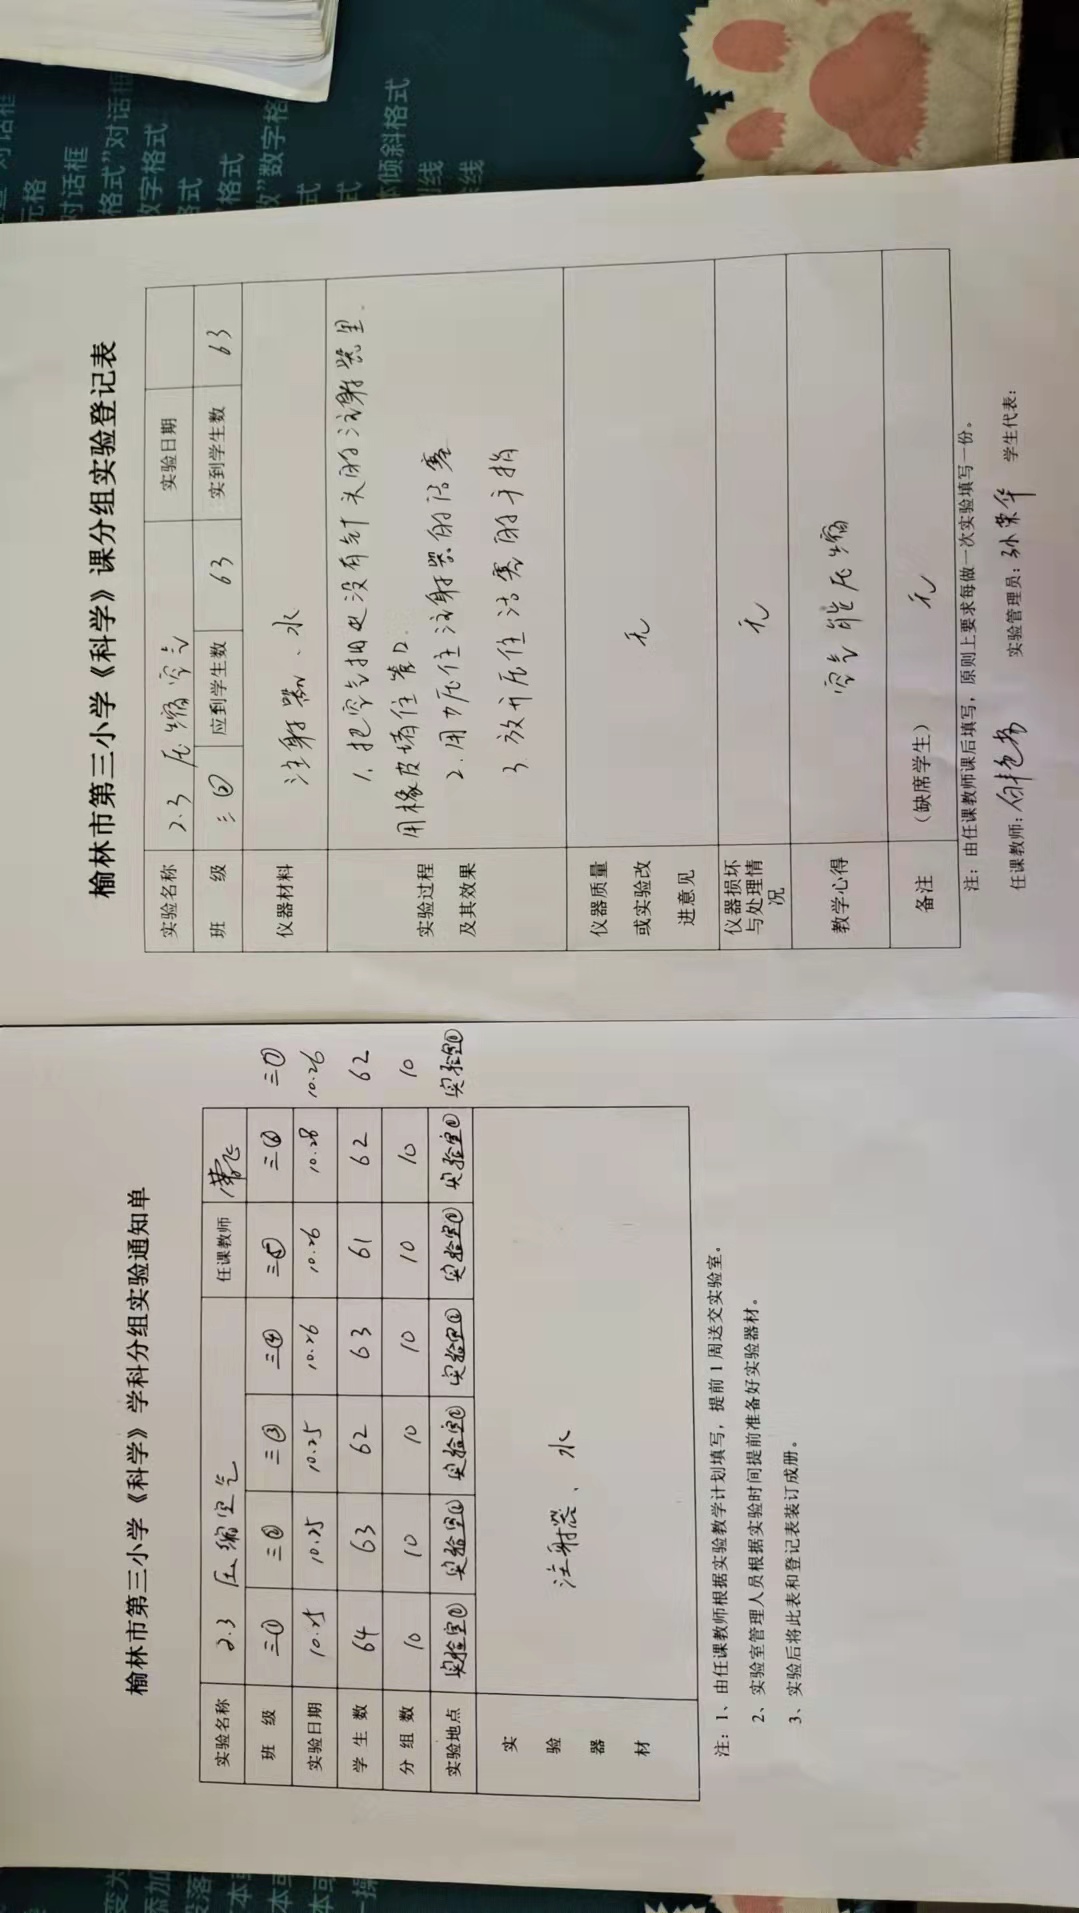 榆林市第三小学《科学》学科分组实验通知单
实验名称 2.3 压缩空气 任课教师
班级 三① 三② 三③ 三④ 三⑤ 三⑥ 三⑦
实验日期 10.25 10.25 10.25 10.26 10.26 10.28 10.26
学生数 64 63 62 63 61 62 62
分组数 10 10 10 10 10 10 10
实验地点 实验室 实验室 实验室 实验室 实验室 实验室 实验室
实验器材 注射器、水
注：1、由任课教师根据实验教学计划填写，提前1周送交实验室。
2、实验室管理人员根据实验时间提前准备好实验器材。
3、实验后将此表和登记表装订成册。
榆林市第三小学《科学》课分组实验登记表
实验名称 2.3 压缩空气 实验日期
班级 三② 应到学生数 63 实到学生数 63
仪器材料 注射器、水
实验过程及其效果
1. 把空气抽进没有针头的注射器里.
用橡皮堵住管口.
2. 用力压住注射器的活塞
3. 放开压住活塞的手指
仪器质量或实验改进意见 无
仪器损坏与处理情况 无
教学心得 空气能压缩
备注 （缺席学生） 无
注：由任课教师课后填写，原则上要求每做一次实验填写一份。
任课教师： 实验管理员：孙荣华 学生代表：
格式”对话框
对话框
数字格式